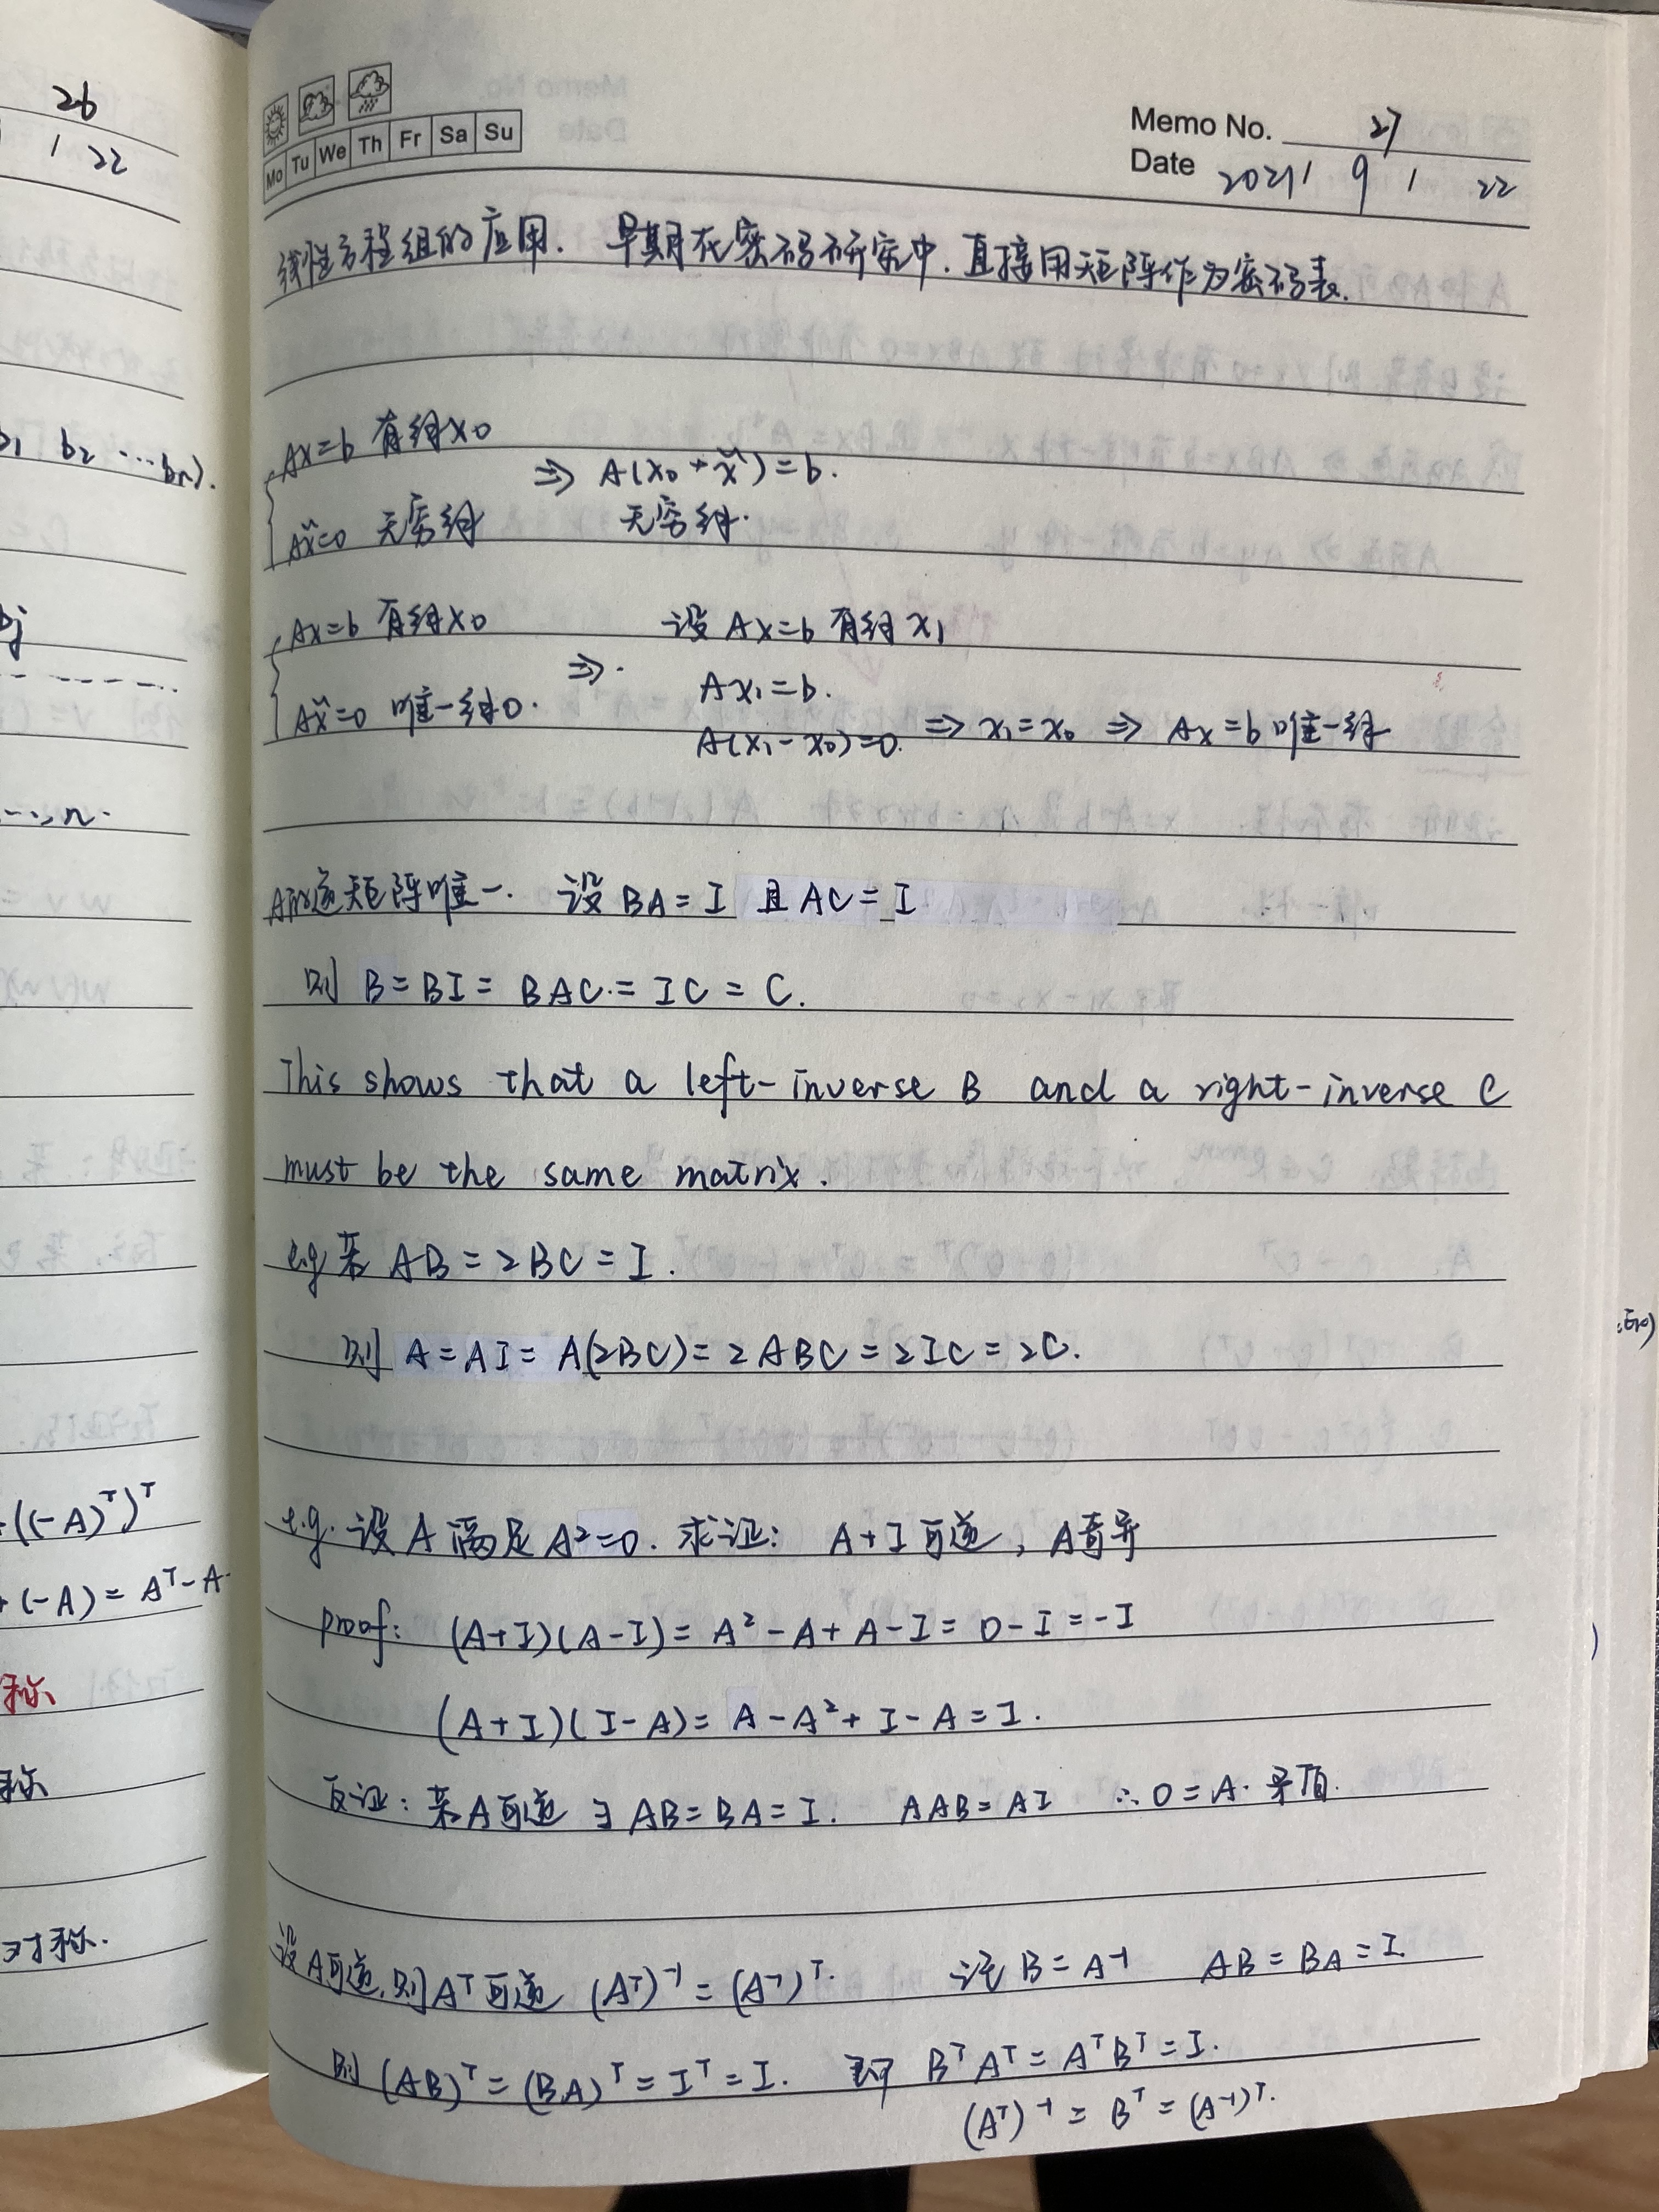 26
1 22
b1 b2 ⋯ bn).
bj
⋯, n.
((-A)ᵀ)ᵀ
+(-A) = Aᵀ - A
称
称
对称.
Mo Tu We Th Fr Sa Su
Memo No. 27
Date 2021 / 9 / 22
线性方程组的应用. 早期在密码研究中. 直接用矩阵作为密码表.
Ax=b 有解x0
⇒ A(x0 + x̃) = b.
Ax̃=0 无穷解 无穷解.
Ax=b 有解x0 设 Ax=b 有解 x1
⇒. Ax1=b.
Ax̃=0 唯一解0.
A(x1-x0)=0. ⇒ x1=x0 ⇒ Ax=b 唯一解
A的逆矩阵唯一. 设 BA = I 且 AC = I
则 B = BI = BAC = IC = C.
This shows that a left-inverse B and a right-inverse C
must be the same matrix.
e.g 若 AB = 2BC = I.
则 A = AI = A(2BC) = 2ABC = 2IC = 2C.
e.g. 设 A 满足 A²=0. 求证: A+I 可逆, A奇异
proof: (A+I)(A-I) = A² - A + A - I = 0 - I = -I
(A+I)(I-A) = A - A² + I - A = I.
反证: 若A可逆 ∃ AB = BA = I. AAB = AI ∴ 0 = A. 矛盾.
设A可逆, 则Aᵀ可逆 (Aᵀ)⁻¹ = (A⁻¹)ᵀ. 记 B = A⁻¹ AB = BA = I
则 (AB)ᵀ = (BA)ᵀ = Iᵀ = I. 即 BᵀAᵀ = AᵀBᵀ = I.
(Aᵀ)⁻¹ = Bᵀ = (A⁻¹)ᵀ.